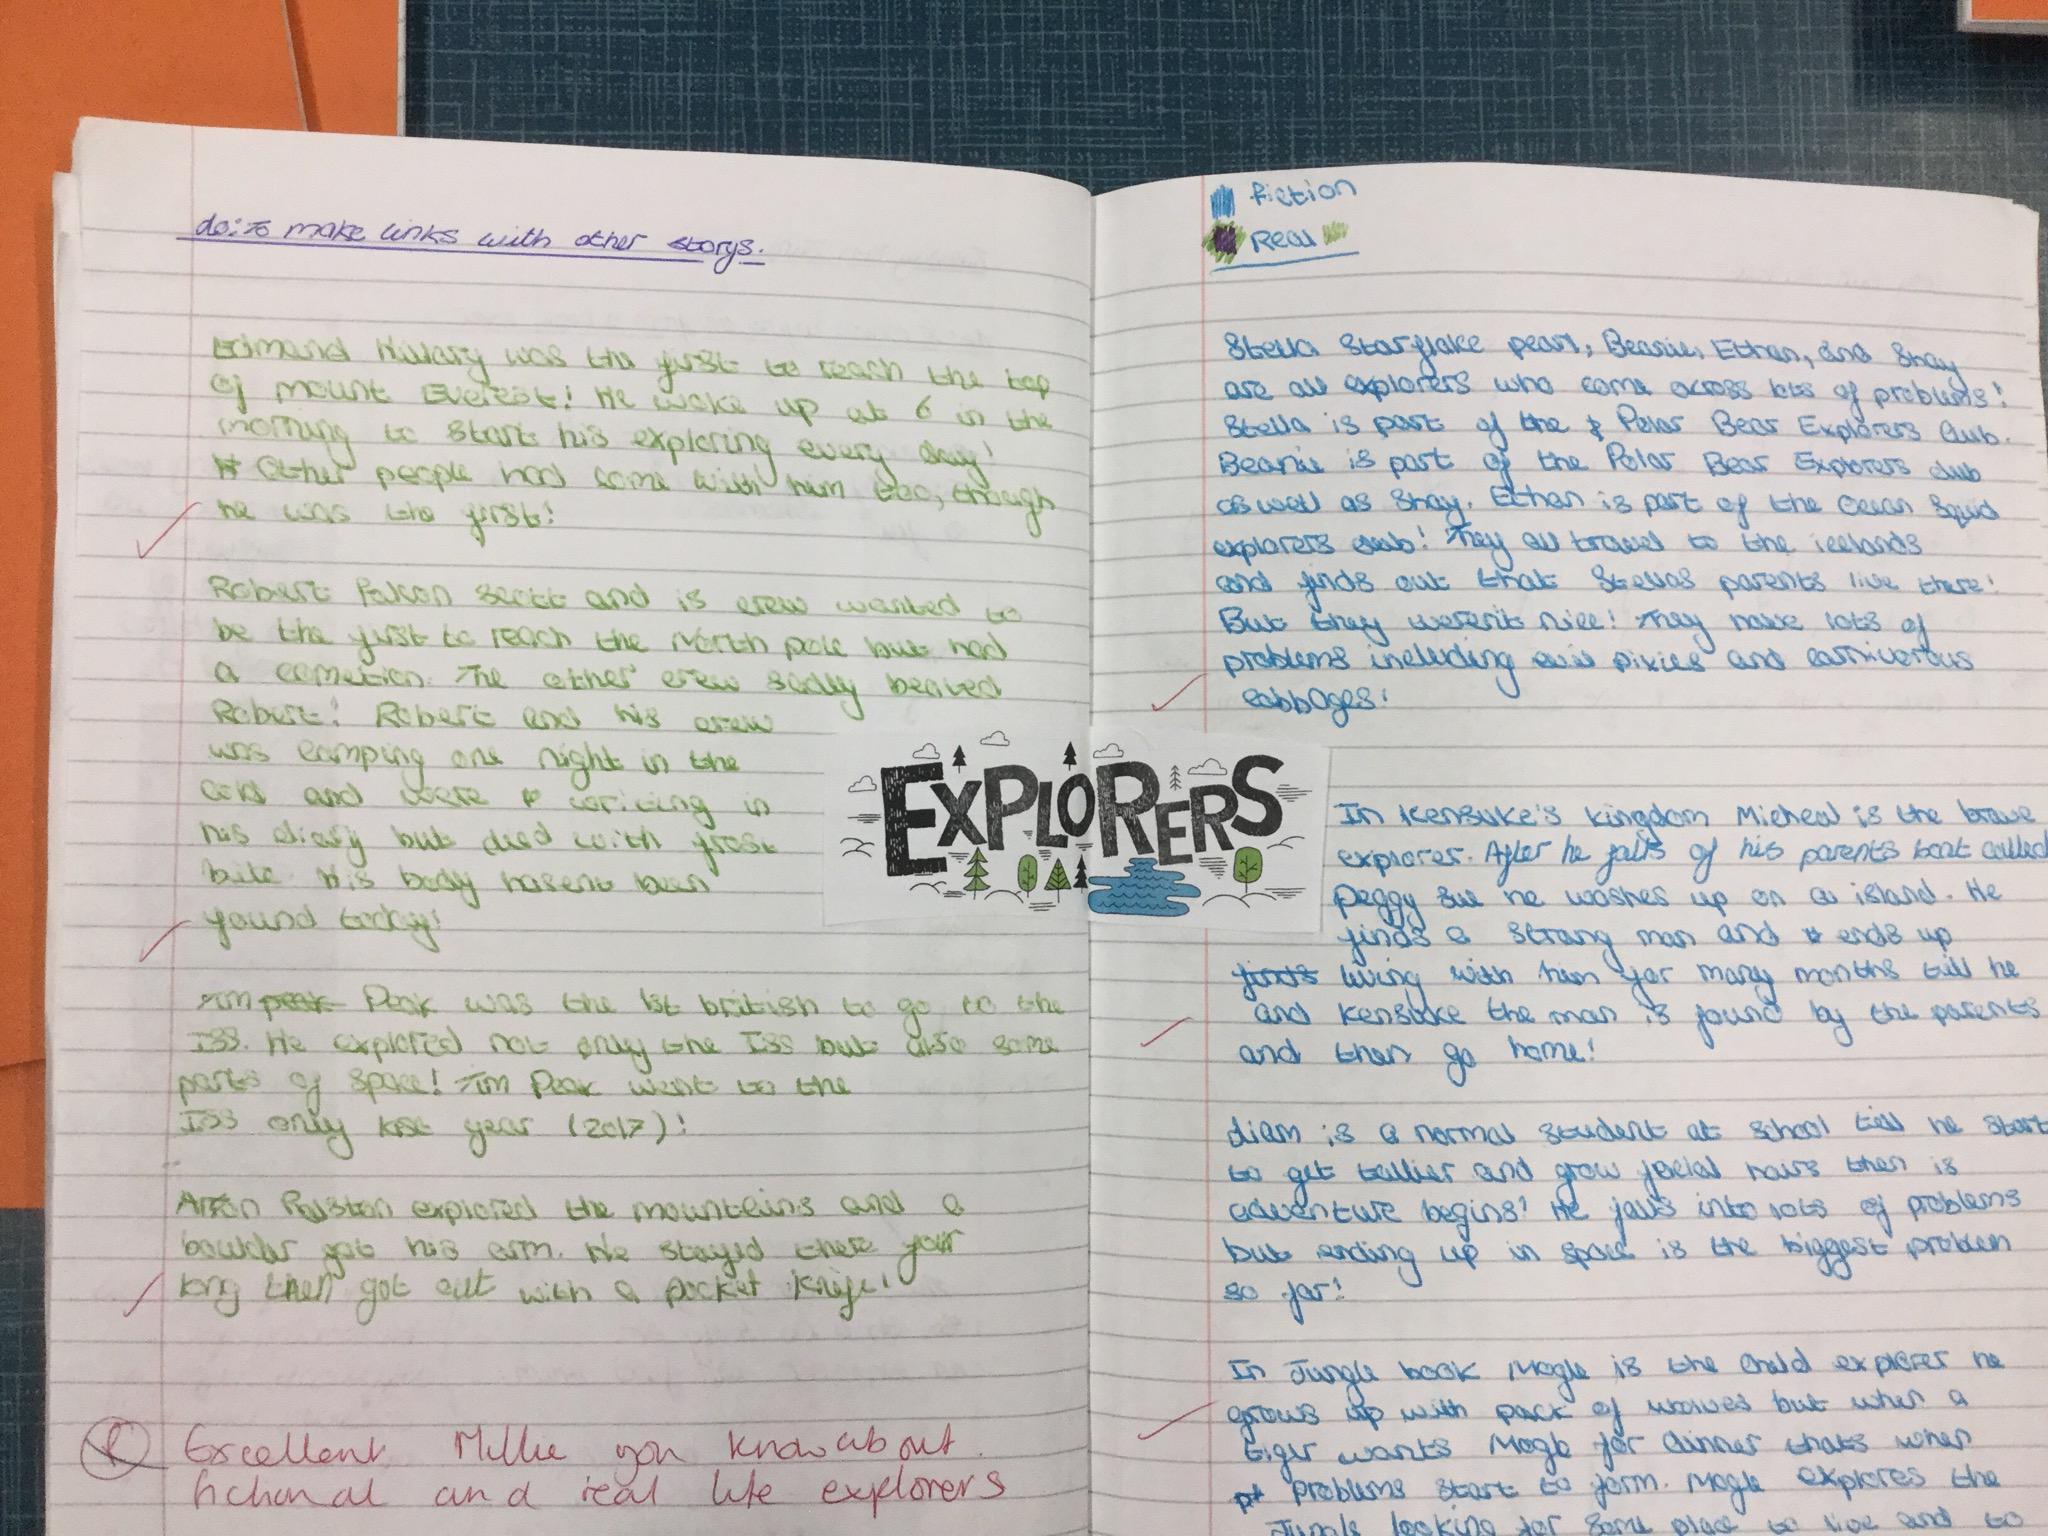 do: to make links with other storys.
Edmand Hillary was the first to reach the top
of mount Everest! He woke up at 6 in the
morning to start his exploring every day!
Other people had come with him too, though
he was the first!
Robert Falcon Scott and is crew wanted to
be the first to reach the North pole but had
a The other crew sadly beated
Robert! Robert and his crew
was camping one night in the
cold and were writing in
his diary but died with frost
bite. His body hasent been
found today!
Tim peak Peak was the 1st british to go to the
ISS. He explored not only the ISS but also some
parts of space! Tim Peak went to the
ISS only last year (2017)!
Arron Ralston explored the mountains and a
boulder got his arm. He stayed there for
long then got out with a pocket knife!
Excellent Millie you know about
fictional and real life explorers
EXPLORERS
fiction
Real
Stella Starflake pearl, Beanie, Ethan, and Shay
are all explorers who come across lots of problems!
Stella is part of the Polar Bear Explorers Club.
Beanie is part of the Polar Bear Explorers club
as well as Shay. Ethan is part of the Ocean Squid
explorers club! They all travel to the icelands
and finds out that Stellas parents live there!
But they weren't nice! They have lots of
problems including evil pixies and carniverous
cabbages!
In Kensuke's kingdom Micheal is the brave
explorer. After he falls of his parents boat called
Peggy sue he washes up on a island. He
finds a strang man and ends up
finds living with him for many months till he
and Kensuke the man is found by the parents
and then go home!
Liam is a normal student at school till he start
to get tallier and grow facial hairs then is
adventure begins! He falls into lots of problems
but ending up in space is the biggest problem
so far!
In Jungle book Mogle is the child explorer he
grows up with pack of wolves but when a
tiger wants Mogle for dinner thats when
problems start to form. Mogle explores the
Jungle looking for some place to live and to